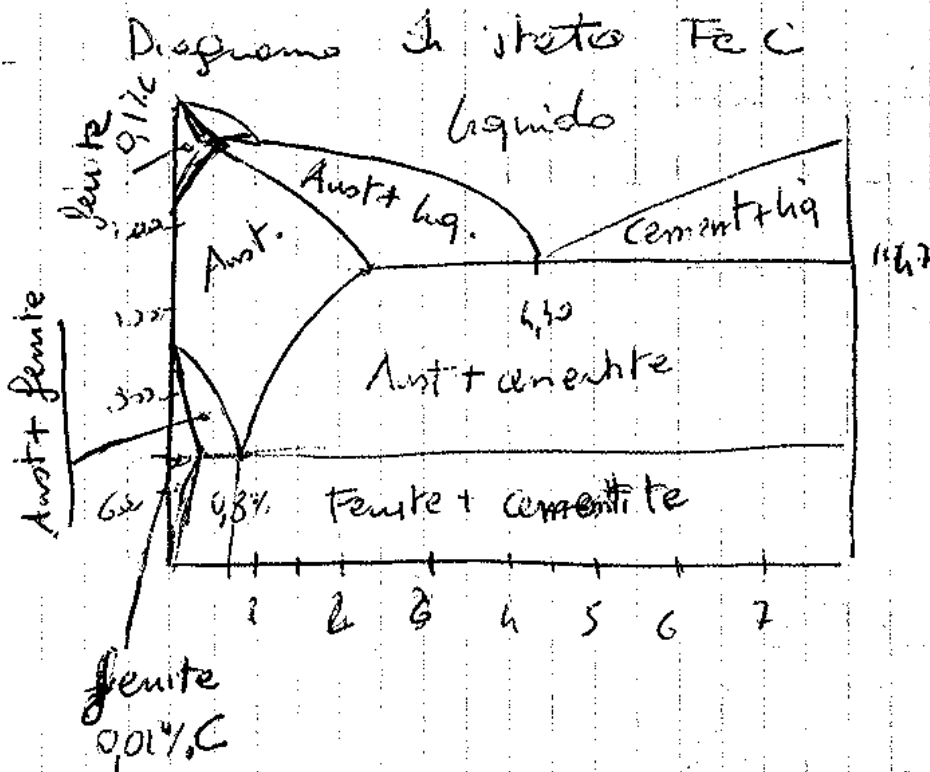 Diagramma di stato Fe C
liquido
ferrite
0,1% C
Aust + liq.
Cement + liq
Aust.
1147
4,30
Aust + cementite
Aust + ferrite
600
0,8%
Ferrite + cementite
1 2 3 4 5 6 7
ferrite
0,01% C